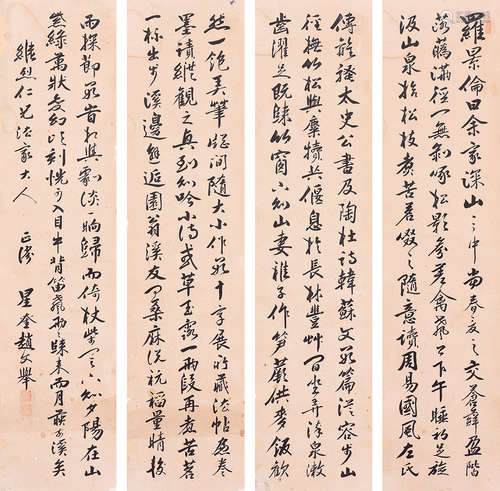 羅景倫曰余家深山之中尚春夏之交蒼蘚盈階
落蘤滿徑一無剝啄松影參差禽聲上下午睡初足旋
汲山泉拾松枝煮苦茗啜之隨意讀周易國風左氏
傳離騷太史公書及陶杜詩韓蘇文數篇從容步山
徑撫竹松與麋犢共偃息於長林豐草間坐弄流泉漱
齒濯足既歸竹窗下則山妻稚子作筍蕨供麥飯歡
然一飽弄筆窗間隨大小作數十字展所藏法帖卷
墨蹟縱觀之興到則吟小詩或草玉露一兩段再煮苦茗
一杯出步溪邊邂逅園翁溪友問桑麻說秔稻量晴校
雨探節數時相與劇談一晌歸而倚杖柴門下則夕陽在山
紫綠萬狀變幻頃刻恍可入目牛背笛聲兩兩歸來而月前溪矣
維烈仁兄法家大人 正 星奎趙文舉